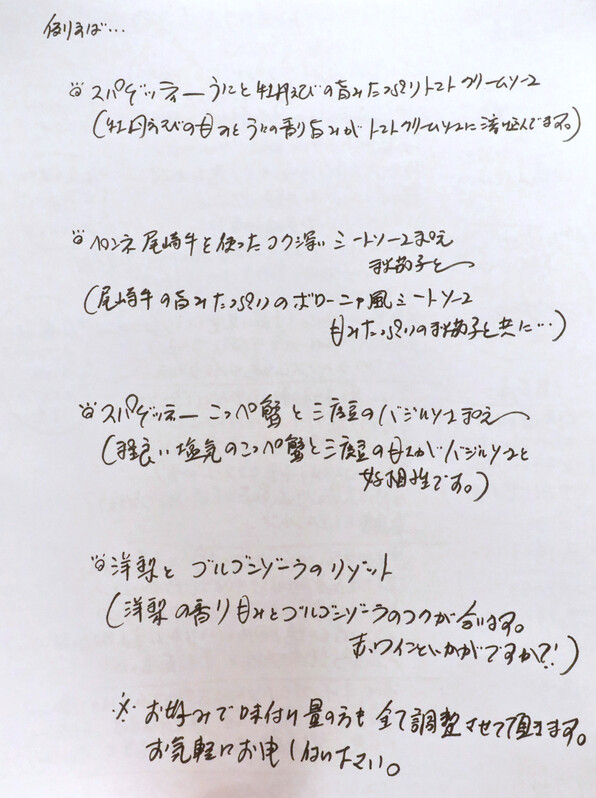 例えば…
スパゲッティー うにと牡丹えびの旨みたっぷりトマトクリームソース
(牡丹えびの甘みとうにの香り旨みがトマトクリームソースに溶け込んでます。)
ペンネ 尾崎牛を使ったコク深いミートソースまぜえ
秋茄子と〜
(尾崎牛の旨みたっぷりのボローニャ風ミートソース
甘みたっぷりの秋茄子と共に…)
スパゲッティー こっペ蟹と三度豆のバジルソースまぜえ〜
(程良い塩気のこっペ蟹と三度豆の甘みがバジルソースと
好相性です。)
洋梨と ゴルゴンゾーラのリゾット
(洋梨の香り甘みとゴルゴンゾーラのコクが合います。
赤ワインといかがですか?!)
※ お好みで味付け量の方も全て調整させて頂きます。
お気軽にお申し付け下さい。